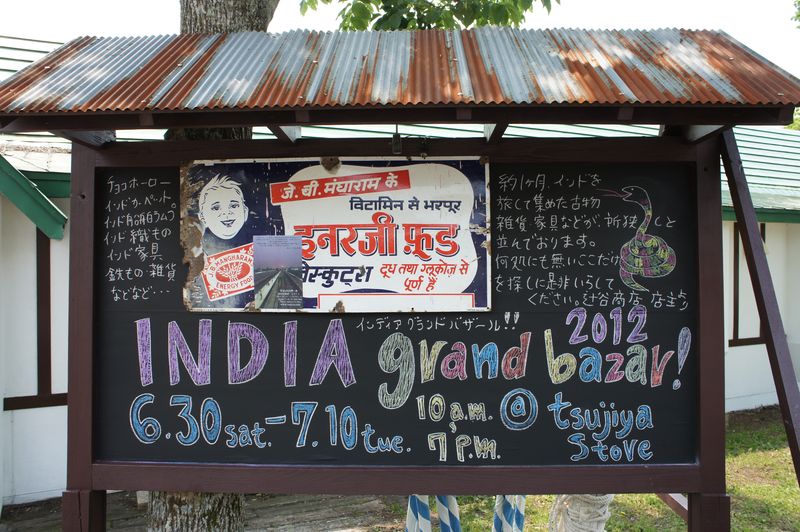 チョコホーロー
インドカーペット。
インド
インド織もの
インド家具
鉄もの 雑貨
などなど・・・
जे. बी. मंघाराम के
विटामिन से भरपूर
इनरजी फ़ूड
बिस्कुट्स
दूध तथा ग्लूकोज़ से
पूर्ण हैं
J.B. MANGHARAM'S
ENERGY FOOD
約1ケ月、インドを
旅して集めた古物
雑貨・家具などが所狭しと
並んでおります。
何処にも無いここだけ
を探しに是非いらして
ください。辻谷商店 店主より
インディア グランド バザール!!
INDIA grand bazar!
2012
6.30 sat. - 7.10 tue.
10 a.m.
7 P.M.
@ tsujiya
Stove